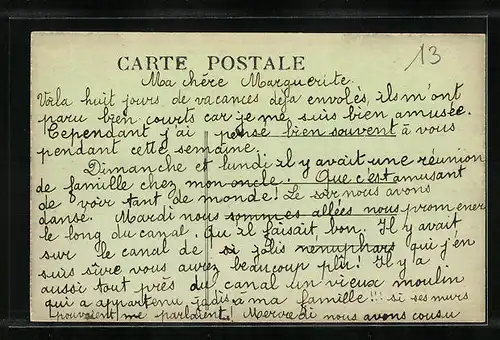 CARTE POSTALE
13
Ma chère Marguerite.
Voila huit jours de vacances deja envolés, ils m'ont
paru bien courts car je me suis bien amusée.
Cependant j'ai pensé bien souvent à vous
pendant cette semaine.
Dimanche et lundi il y avait une réunion
de famille chez mon oncle. Que c'est amusant
de voir tant de monde! Le soir nous avons
dansé. Mardi nous sommes allées nous promener
le long du canal. qu'il faisait bon. Il y avait
sur le canal de si jolis nenuphars qui j'en
suis sûre vous aurez beaucoup plu! Il y a
aussi tout près du canal un vieux moulin
qui a appartenu jadis à ma famille!!! si ses murs
pouvaient me parlaient! Mercredi nous avons cousu